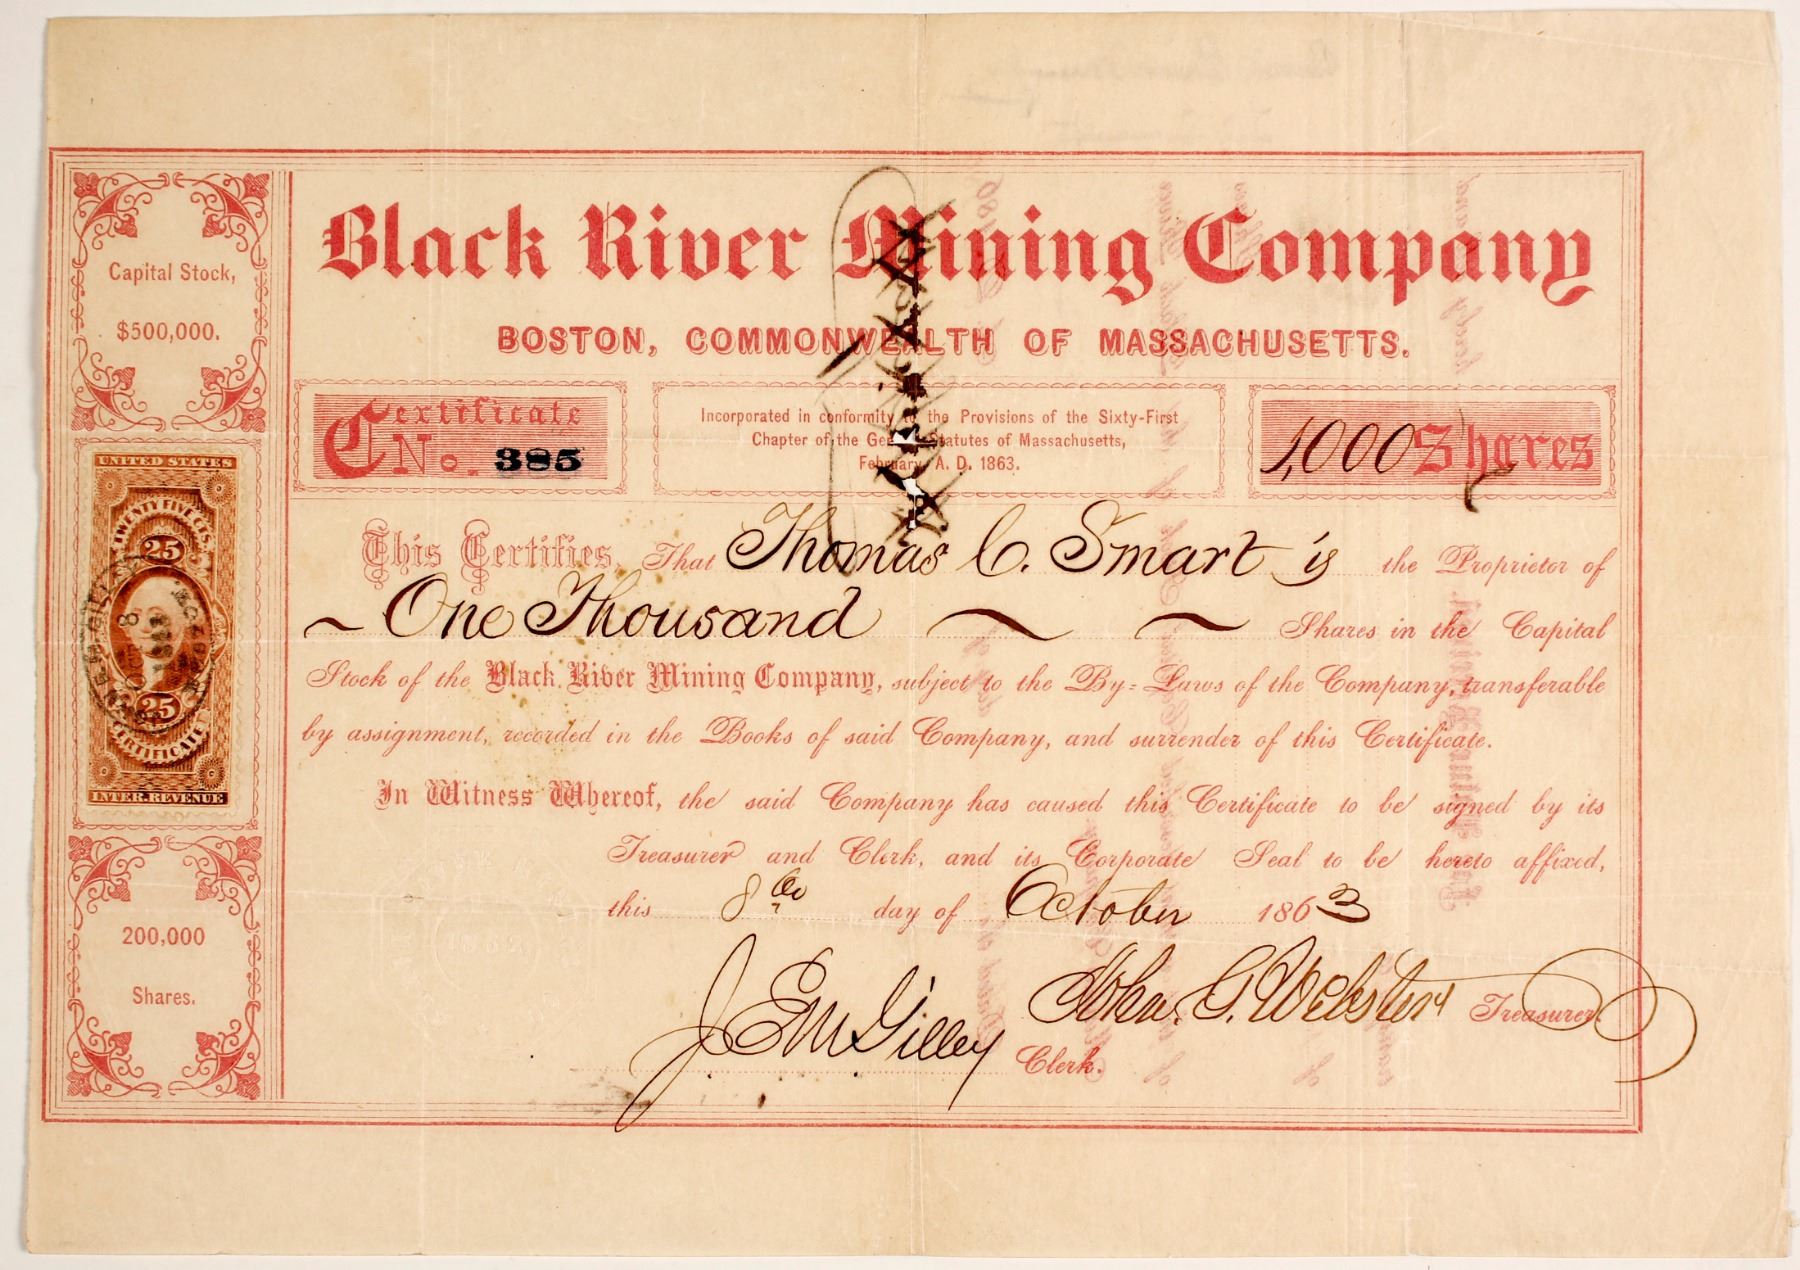 Black River Mining Company
BOSTON, COMMONWEALTH OF MASSACHUSETTS.
Capital Stock,
$500,000.
Certificate
No. 385
Incorporated in conformity to the Provisions of the Sixty-First
Chapter of the Statutes of Massachusetts,
February, A. D. 1863.
1,000 Shares
UNITED STATES
TWENTY FIVE CTS.
25
OCT 8
25
CERTIFICATE
INTER. REVENUE
This Certifies, That Thomas C. Smart is the Proprietor of
~ One Thousand ~ ~ Shares in the Capital
Stock of the Black River Mining Company, subject to the By-Laws of the Company, transferable
by assignment, recorded in the Books of said Company, and surrender of this Certificate.
In Witness Whereof, the said Company has caused this Certificate to be signed by its
Treasurer and Clerk, and its Corporate Seal to be hereto affixed,
this 8th day of October 1863
200,000
Shares.
John G. Webster Treasurer
J. E. M. Gilley Clerk.